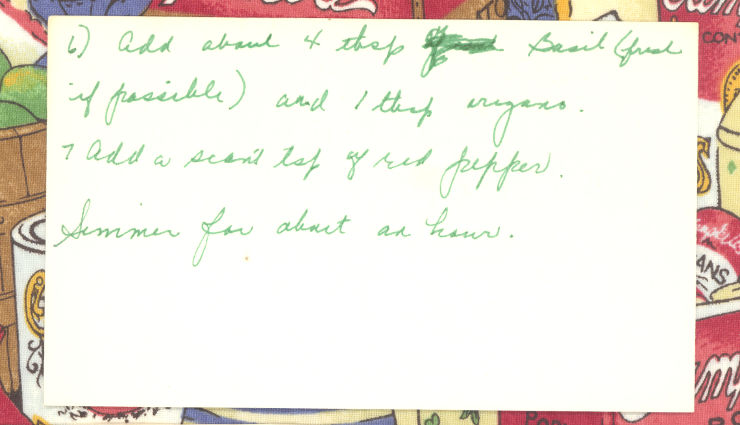 6) Add about 4 tbsp Basil (fresh
if possible) and 1 tbsp oregano.
7 Add a scant tsp of red pepper.
Simmer for about an hour.
CON
ANS